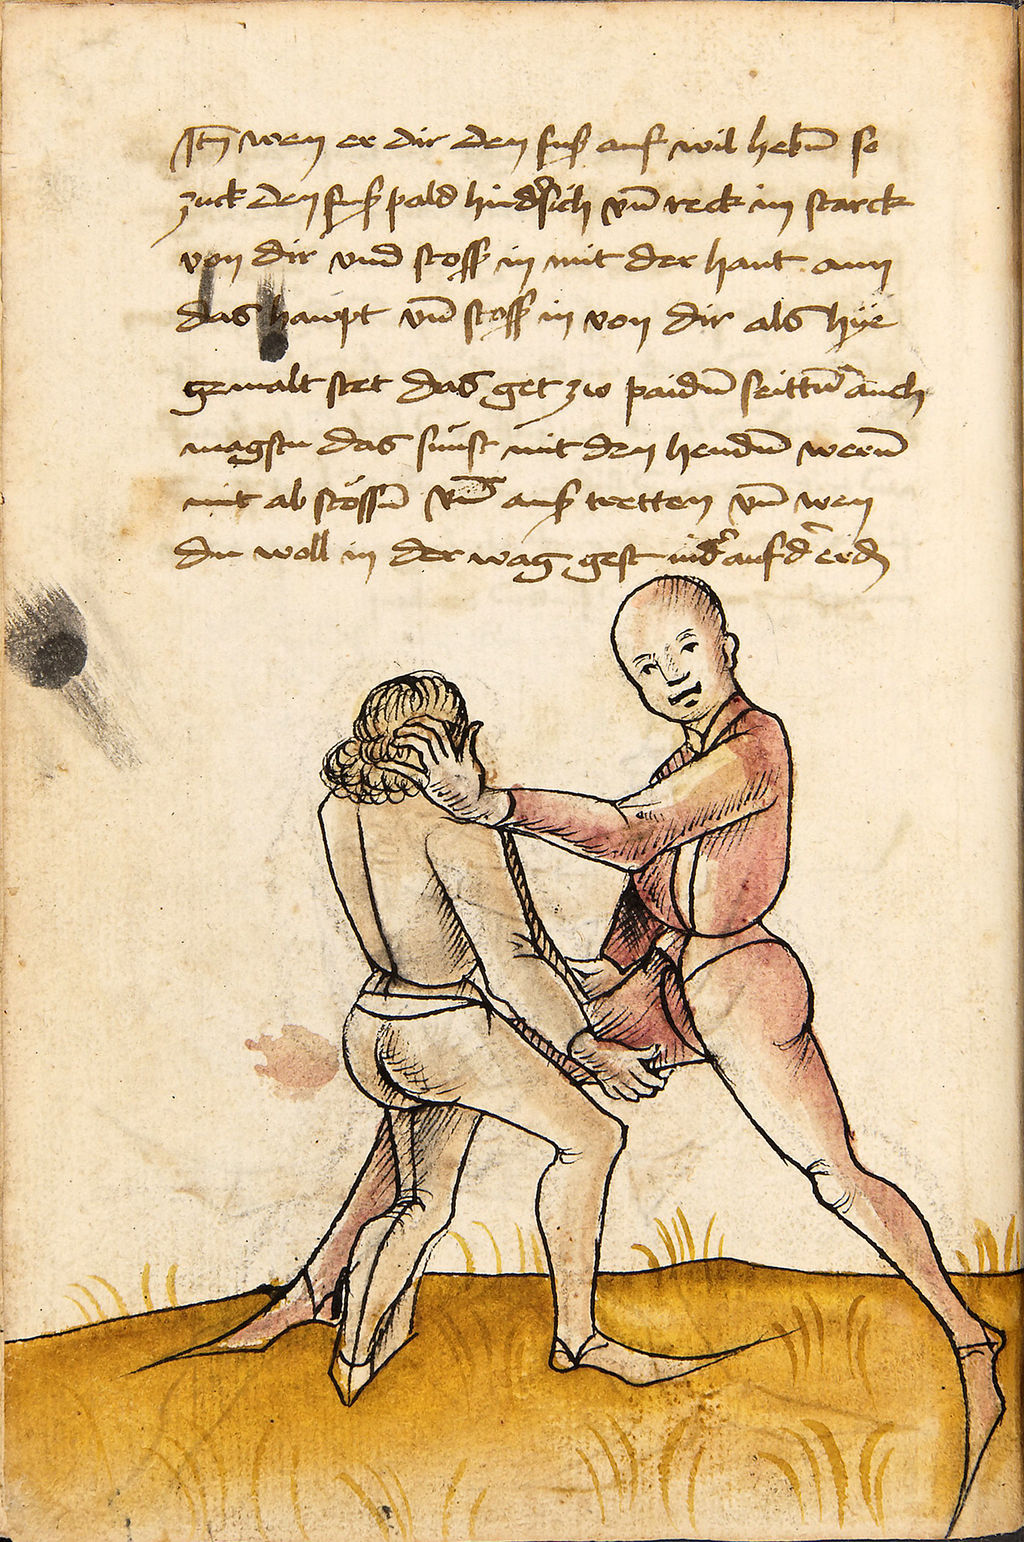 Itm̄ wen er dir den fuß auf wil hebn̄ so
zuck den fuß pald hinds̉ich vn̄ reck in starck
von dir vnd stoss in mit der hant ann
das haŭpt vn̄ stoss in von dir als hÿe
gemalt stet das get zw paidn̄ seittn̄ auch
magstu das sünst mit den hendn̄ wern̄
mit ab stössn̄ vn̄ auß tretten vn̄ wen
du woll in der wag gest auf erd